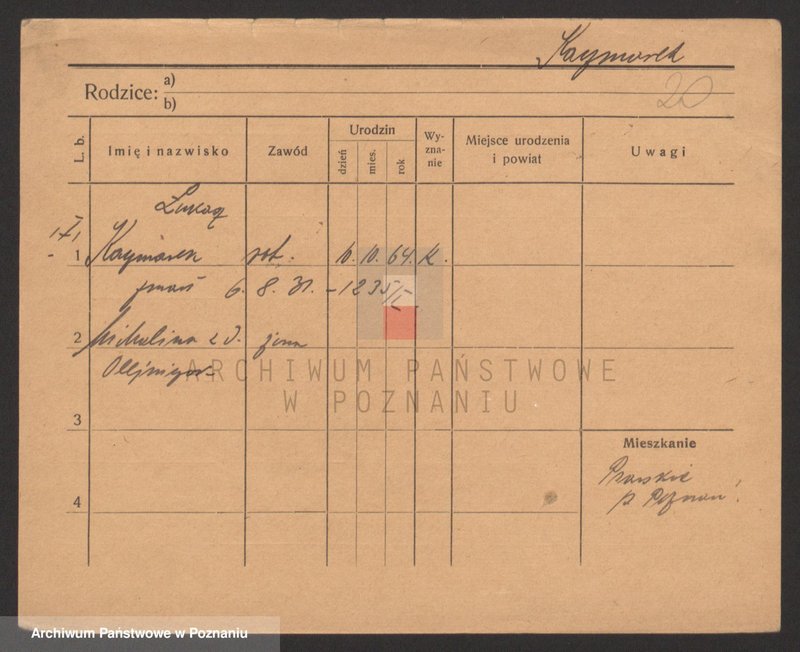 Kaymarek
20
Rodzice: a)
b)
L. b.
Imię i nazwisko
Zawód
Urodzin
dzień
mies.
rok
Wy-
zna-
nie
Miejsce urodzenia
i powiat
Uwagi
Łukasz
1 Kaymarek rob. 10. 10. 64. k.
zmarł 6. 8. 31. - 1235/I
2 Michalina z d. żona
3
Mieszkanie
4
ARCHIWUM PAŃSTWOWE
W POZNANIU
Archiwum Państwowe w Poznaniu